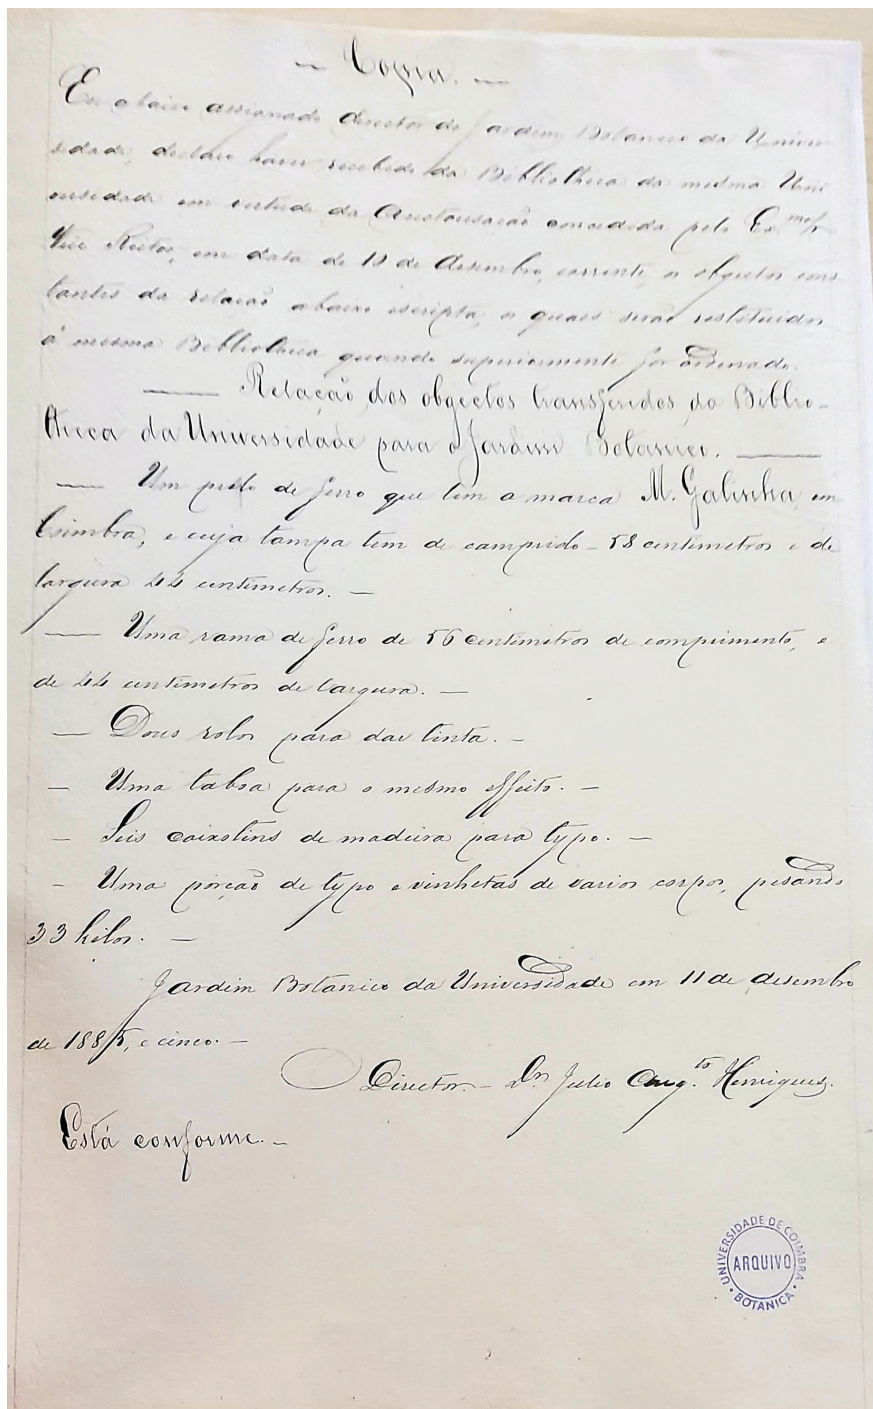 — Copia. —
Eu abaixo assignado director do Jardim Botanico da Univer
sidade, declaro haver recebido da Bibliotheca da mesma Uni
versidade em virtude da auctorisação concedida pelo Ex.mo Sr.
Vice Reitor, em data de de desembro, corrente, os objectos cons
tantes da relação abaixo escripta, os quaes serão restituidos
á mesma Bibliotheca quando superiormente for ordenado.
— Relação dos objectos transferidos da Biblio-
theca da Universidade para o Jardim Botanico. —
— Um prelo de ferro que tem a marca M. Galinha, em
Coimbra, e cuja tampa tem de comprido - 58 centimetros e de
largura 44 centimetros. —
— Uma rama de ferro de 56 centimetros de comprimento, e
de 44 centimetros de largura. —
— Dous rolos para dar tinta. —
— Uma taboa para o mesmo effeito. —
— Seis caixotins de madeira para typo. —
— Uma porção de typo e vinhetas de varios corpos, pesando
33 kilos. —
Jardim Botanico da Universidade em 11 de desembro
de 1885, e cinco. —
O Director - Dr. Julio Aug.to Henriques.
Está conforme. —
UNIVERSIDADE DE COIMBRA
ARQUIVO
• BOTANICA •